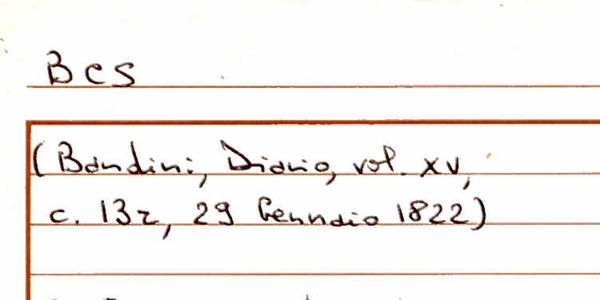 Bcs
(Bandini, Diario, vol. XV,
c. 13r, 29 Gennaio 1822)